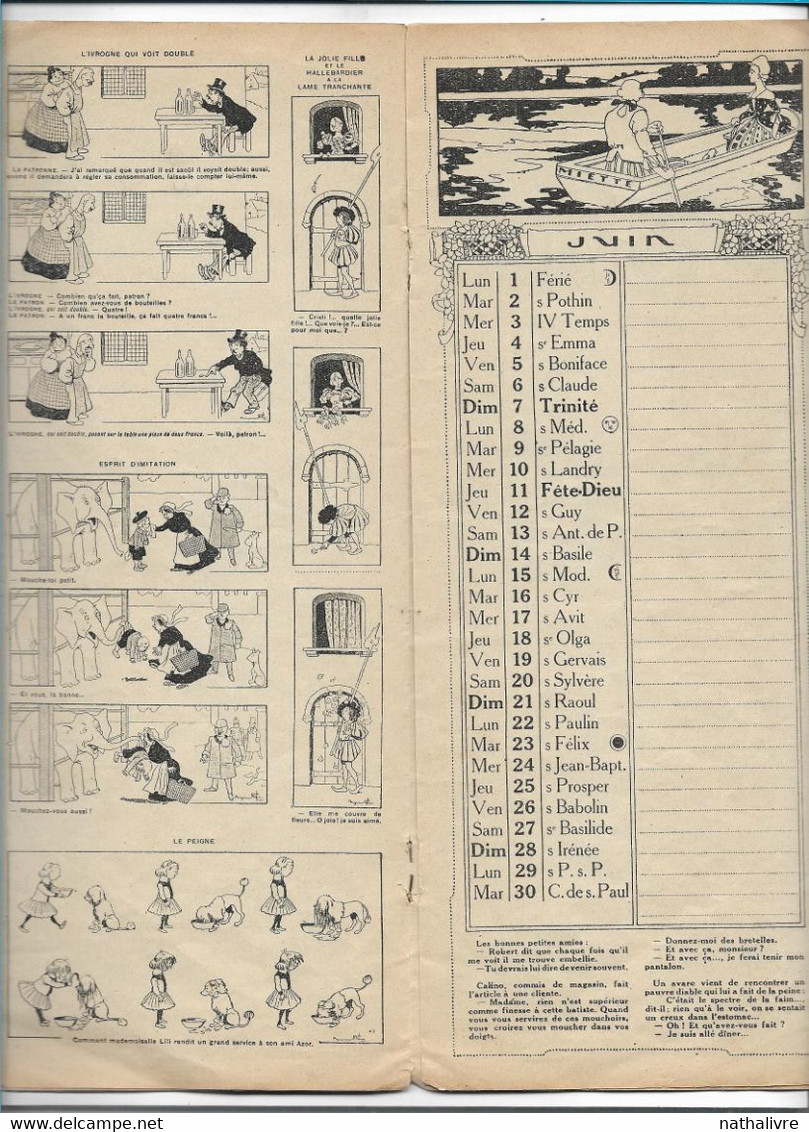 L'IVROGNE QUI VOIT DOUBLE
LA PATRONNE. — J'ai remarqué que quand il est saoûl il voyait double; aussi,
quand il demandera à régler sa consommation, laisse-le compter lui-même.
L'IVROGNE — Combien qu'ça fait, patron ?
LE PATRON — Combien avez-vous de bouteilles ?
L'IVROGNE, qui voit double. — Quatre !
LE PATRON — A un franc la bouteille, ça fait quatre francs !...
L'IVROGNE, qui voit double, posant sur la table une pièce de deux francs. — Voilà, patron !...
ESPRIT D'IMITATION
— Mouche-toi petit.
— Et vous, la bonne...
— Mouchez-vous aussi !
LA JOLIE FILLE
ET LE
HALLEBARDIER
A LA
LAME TRANCHANTE
— Cristi !... quelle jolie
fille !... Que vois-je ?... Est-ce
pour moi que... ?
— Elle me couvre de
fleurs... O joie ! je suis aimé.
LE PEIGNE
Comment mademoiselle Lili rendit un grand service à son ami Azor.
MIETTE
JUIN
Lun 1 Férié
Mar 2 s Pothin
Mer 3 IV Temps
Jeu 4 sᵉ Emma
Ven 5 s Boniface
Sam 6 s Claude
Dim 7 Trinité
Lun 8 s Méd.
Mar 9 sᵉ Pélagie
Mer 10 s Landry
Jeu 11 Fête-Dieu
Ven 12 s Guy
Sam 13 s Ant. de P.
Dim 14 s Basile
Lun 15 s Mod.
Mar 16 s Cyr
Mer 17 s Avit
Jeu 18 sᵉ Olga
Ven 19 s Gervais
Sam 20 s Sylvère
Dim 21 s Raoul
Lun 22 s Paulin
Mar 23 s Félix
Mer 24 s Jean-Bapt.
Jeu 25 s Prosper
Ven 26 s Babolin
Sam 27 sᵉ Basilide
Dim 28 s Irénée
Lun 29 s P. s. P.
Mar 30 C. de s. Paul
Les bonnes petites amies :
— Robert dit que chaque fois qu'il
me voit il me trouve embellie.
— Tu devrais lui dire de venir souvent.
Calino, commis de magasin, fait
l'article à une cliente.
— Madame, rien n'est supérieur
comme finesse à cette batiste. Quand
vous vous servirez de ces mouchoirs,
vous croirez vous moucher dans vos
doigts.
— Donnez-moi des bretelles.
— Et avec ça, monsieur ?
— Et avec ça..., je ferai tenir mon
pantalon.
Un avare vient de rencontrer un
pauvre diable qui lui a fait de la peine :
C'était le spectre de la faim...,
dit-il; rien qu'à le voir, on se sentait
un creux dans l'estomac...
— Oh ! Et qu'avez-vous fait ?
— Je suis allé dîner...
nathalivre